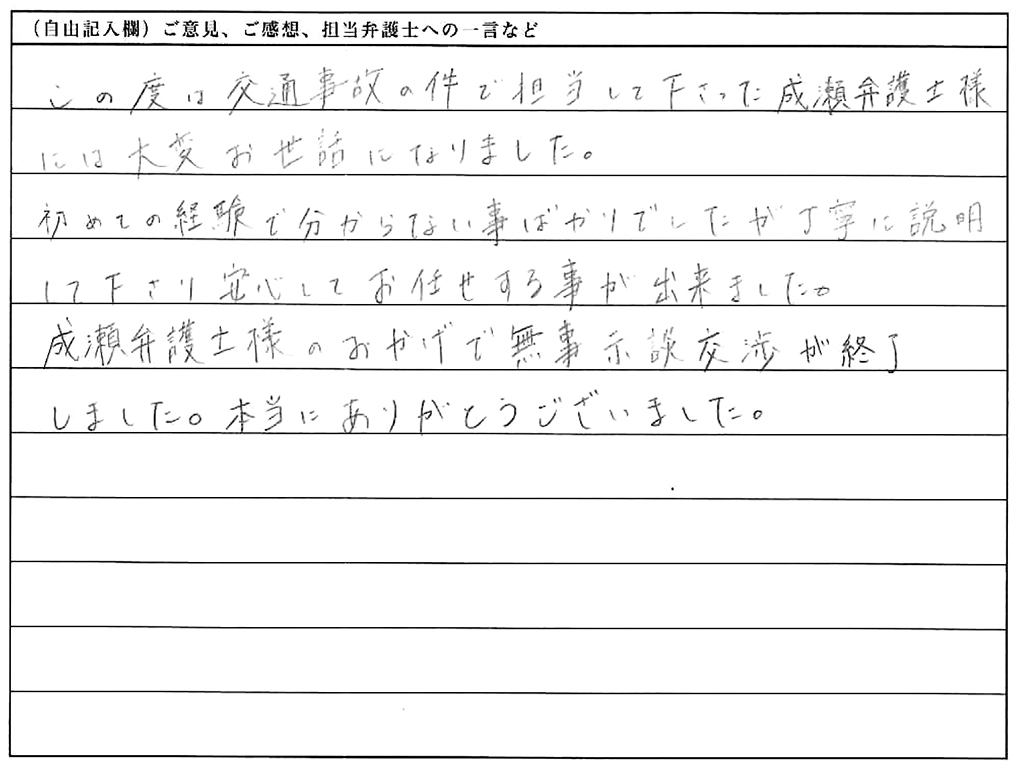 （自由記入欄）ご意見、ご感想、担当弁護士への一言など
この度は交通事故の件で担当して下さった成瀬弁護士様
には大変お世話になりました。
初めての経験で分からない事ばかりでしたが丁寧に説明
して下さり安心してお任せする事が出来ました。
成瀬弁護士様のおかげで無事示談交渉が終了
しました。本当にありがとうございました。